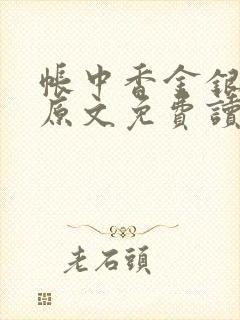 帳中香金銀
原文免費讀
老石頭